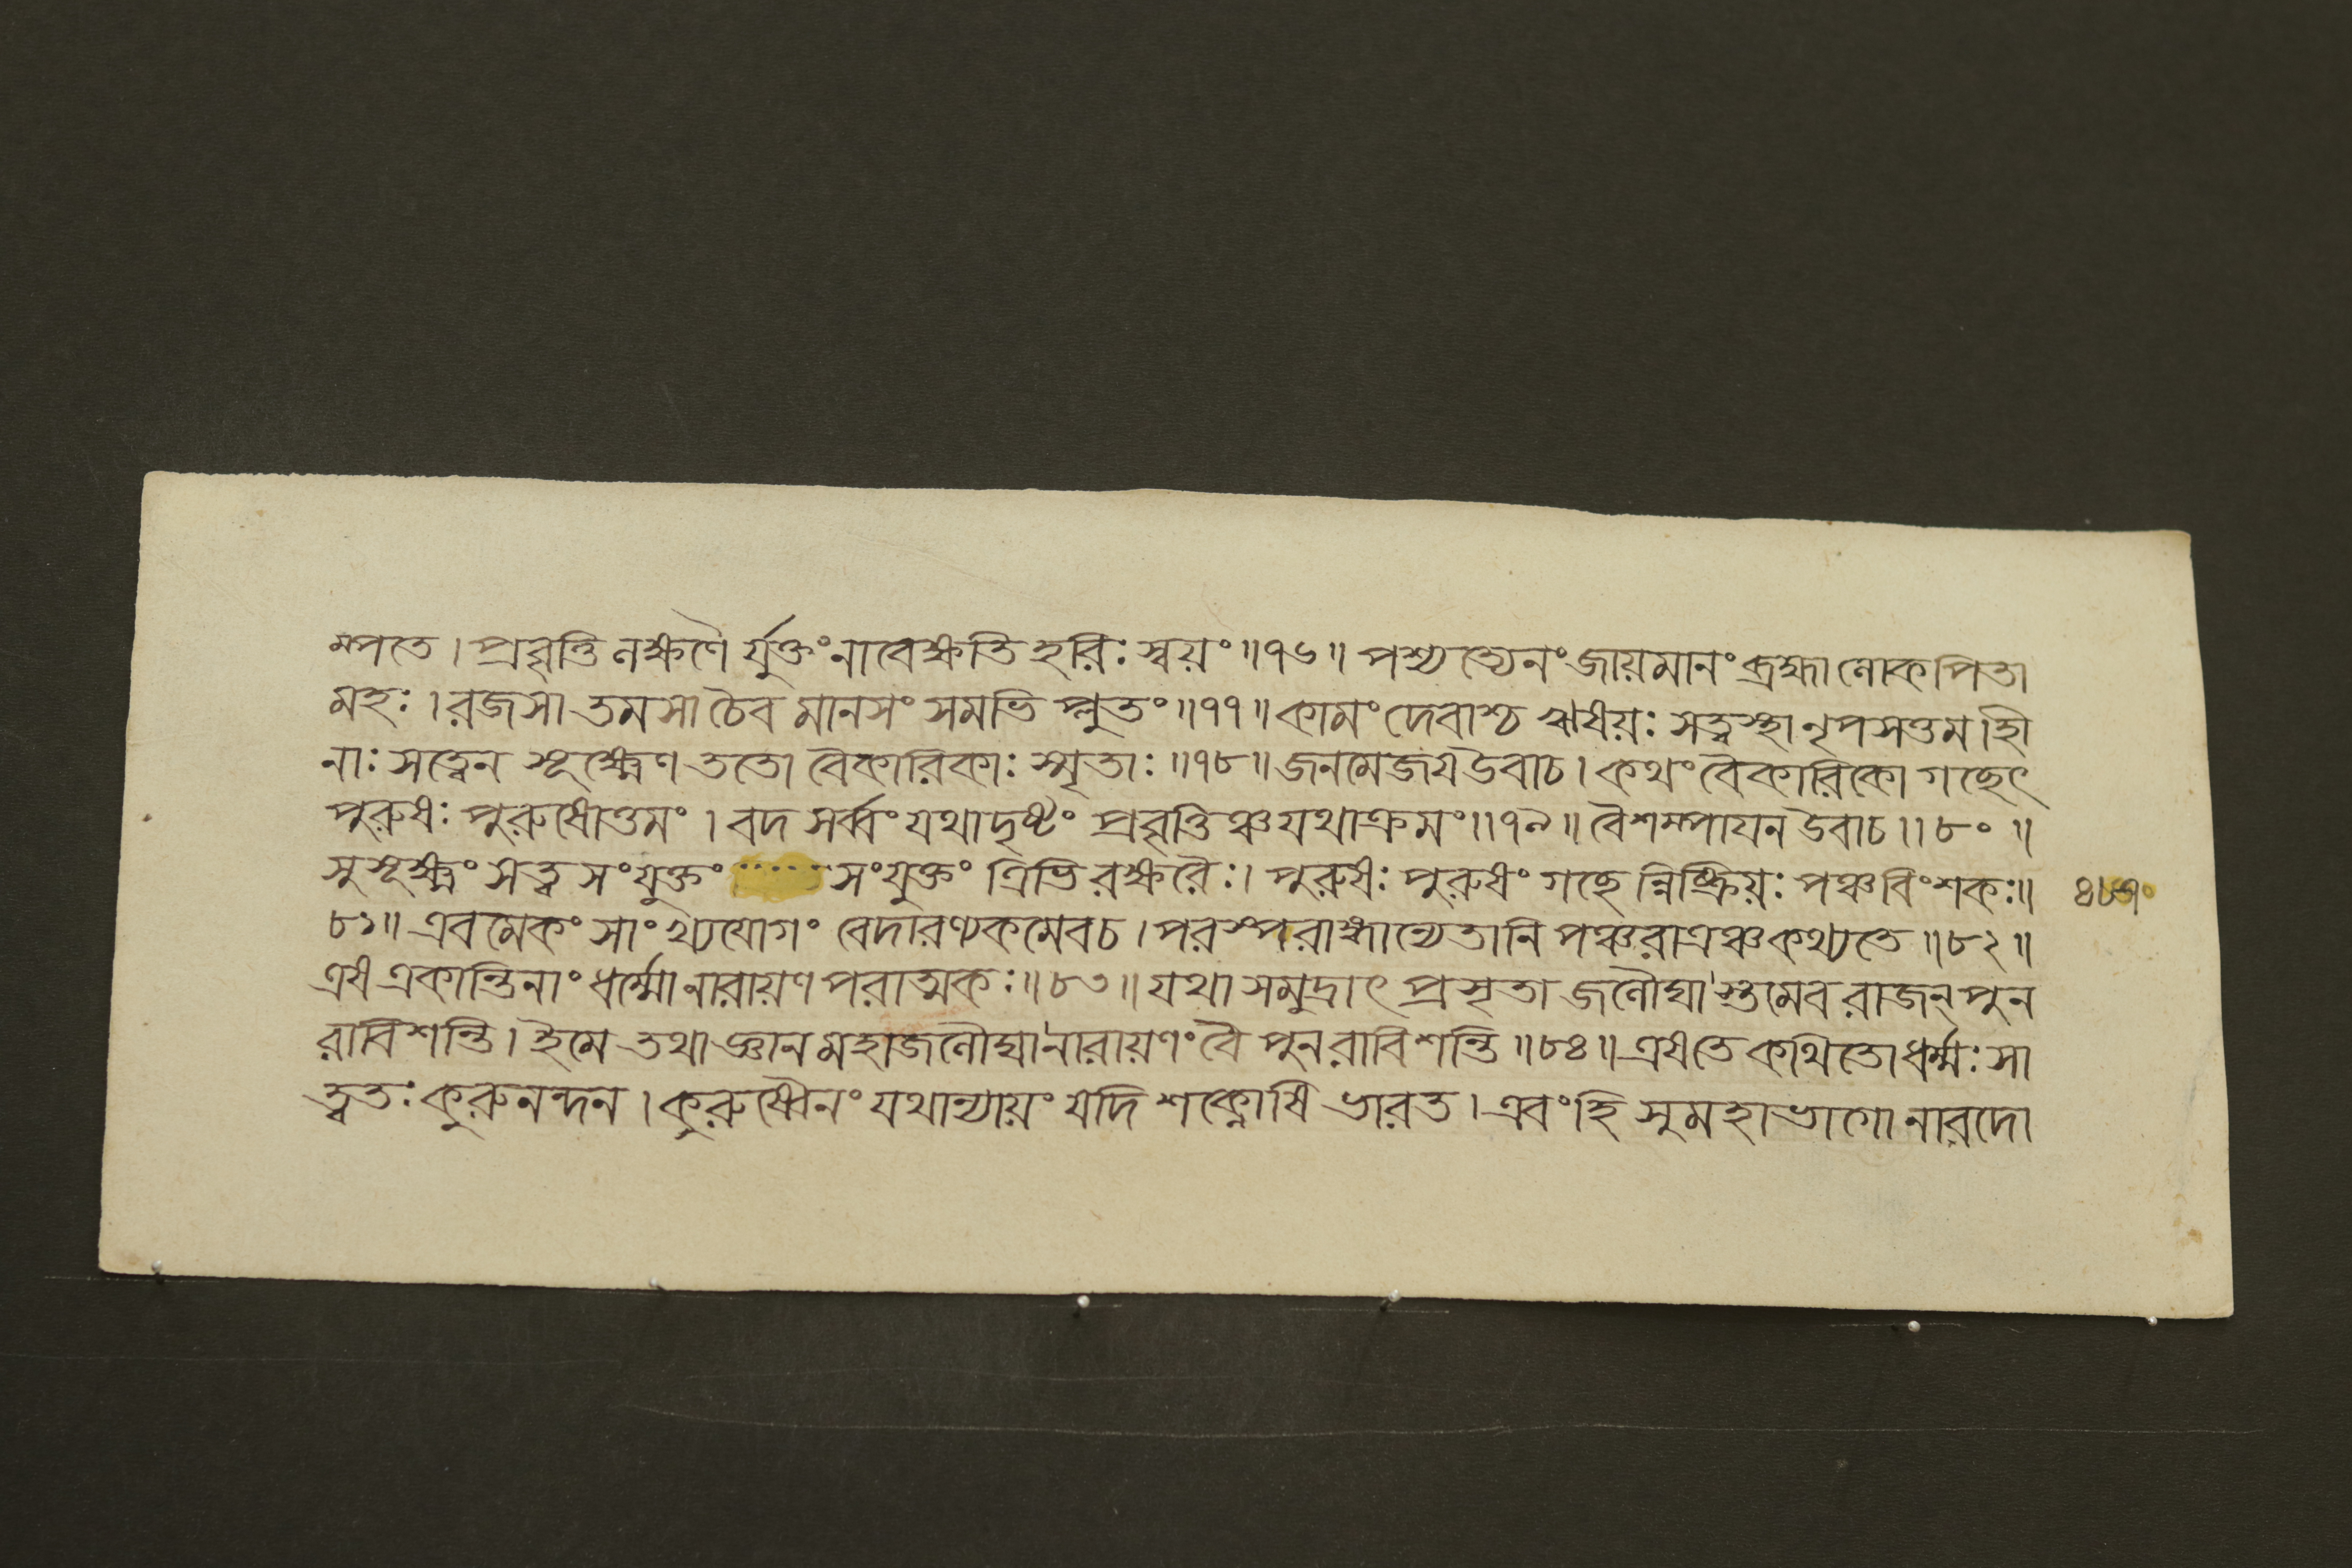 ম্পতে । প্রবৃত্তি লক্ষণৈ র্যুক্তং নাবেক্ষতি হরিঃ স্বয়ং ॥ ৭৬ ॥ পশ্যত্যেনং জায়মানং ব্রহ্মা লোকপিতা
মহঃ । রজসা তমসা চৈব মানসং সমভি প্লুতং ॥ ৭৭ ॥ কামং দেবাশ্চ ঋষয়ঃ সত্ত্বস্থা নৃপসত্তম । হী
নাঃ সত্ত্বেন সূক্ষ্মেণ ততো বৈকারিকাঃ স্মৃতাঃ ॥ ৭৮ ॥ জনমেজয উবাচ । কথং বৈকারিকো গচ্ছেৎ
পুরুষঃ পুরুষোত্তমং । বদ সর্ব্বং যথাদৃষ্টং প্রবৃত্তিঞ্চ যথাক্রমং ॥ ৭৯ ॥ বৈশম্পাযন উবাচ ॥ ৮০ ॥
সুসূক্ষ্মং সত্ত্ব সংযুক্তং সংযুক্তং ত্রিভি রক্ষরৈঃ । পুরুষঃ পুরুষং গচ্ছে ন্নিষ্ক্রিয়ঃ পঞ্চবিংশকঃ ॥
৮১ ॥ এবমেকং সাংখ্যযোগং বেদারণ্যকমেবচ । পরস্পরাঙ্গান্যেতানি পঞ্চরাত্রঞ্চ কথ্যতে ॥ ৮২ ॥
এষ একান্তিনাং ধর্ম্মো নারায়ণ পরাত্মকঃ ॥ ৮৩ ॥ যথা সমুদ্রাৎ প্রসৃতা জলৌঘা স্তমেব রাজন্ পুন
রাবিশন্তি । ইমে তথা জ্ঞান মহাজলৌঘা নারায়ণং বৈ পুনরাবিশন্তি ॥ ৮৪ ॥ এষ তে কথিতো ধর্ম্মঃ সা
ত্ত্বতঃ কুরুনন্দন । কুরুষ্বৈনং যথান্যায়ং যদি শক্নোষি ভারত । এবংহি সুমহাভাগো নারদো